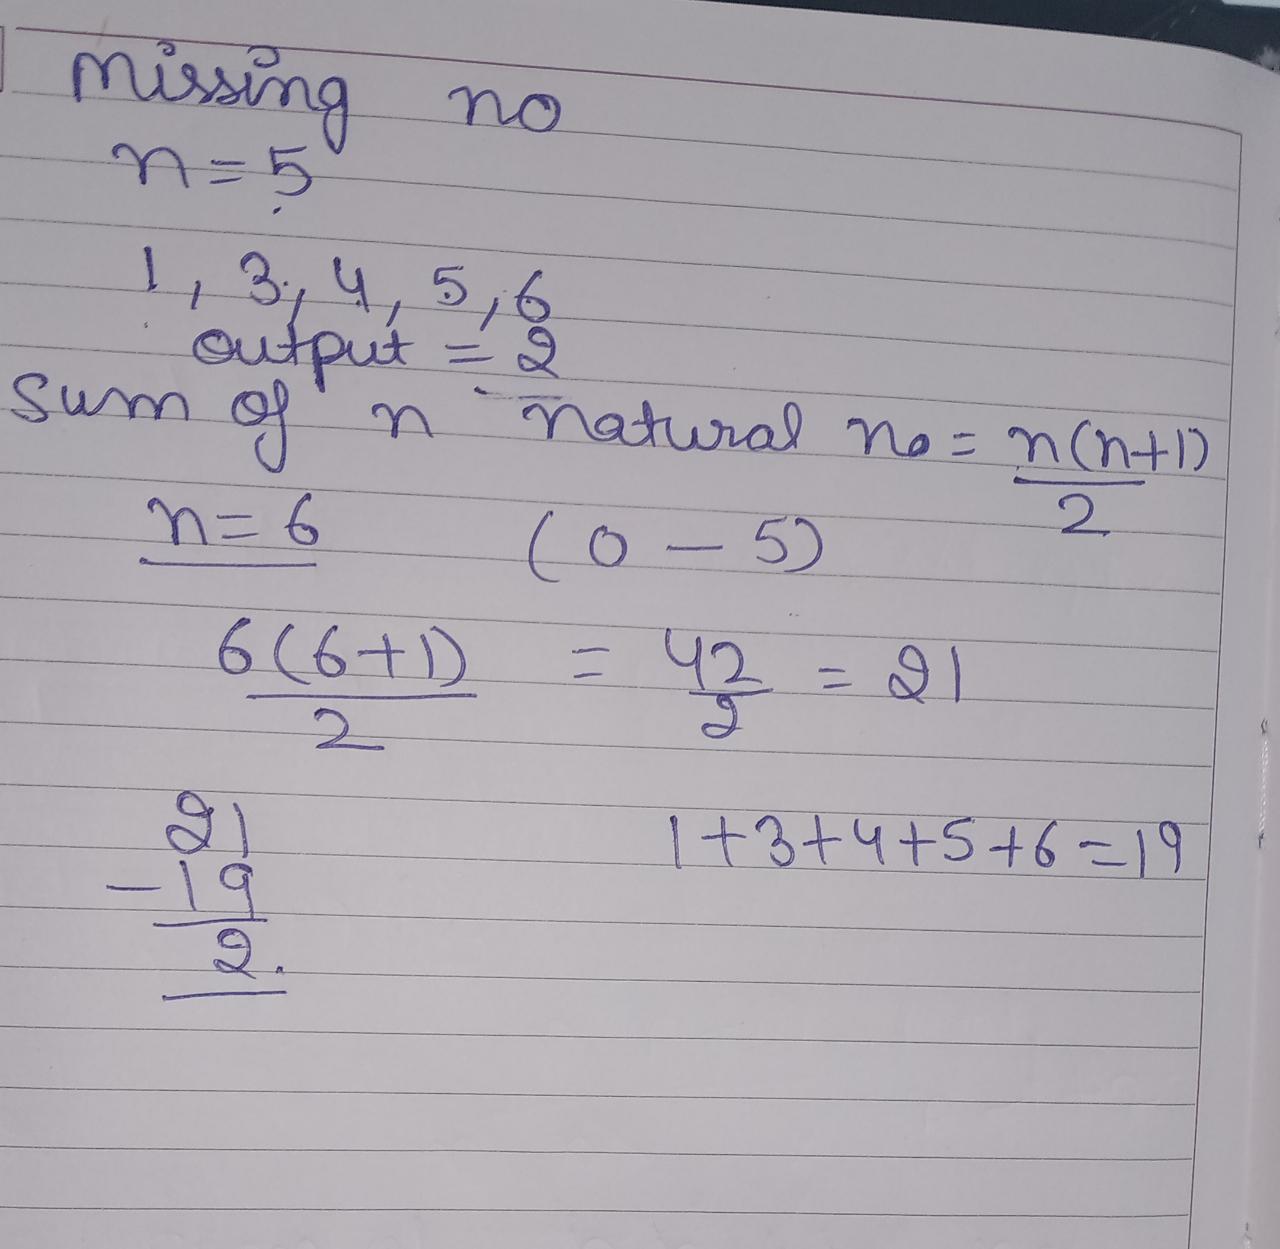 missing no
n=5
1, 3, 4, 5, 6
output = 2
sum of n natural no = n(n+1)
2
n=6 (0-5)
6(6+1) = 42 = 21
2 2
21 1+3+4+5+6=19
-19
2.